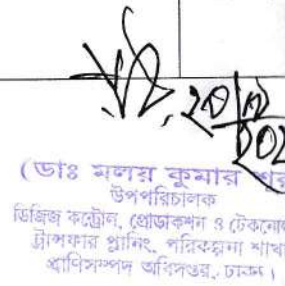 (ডাঃ মলয় কুমার
উপপরিচালক
ডিজিজ কন্ট্রোল, প্রোডাকশন ও
ট্রান্সফার প্লানিং, পরিকল্পনা শাখা
প্রাণিসম্পদ অধিদপ্তর, ঢাকা।